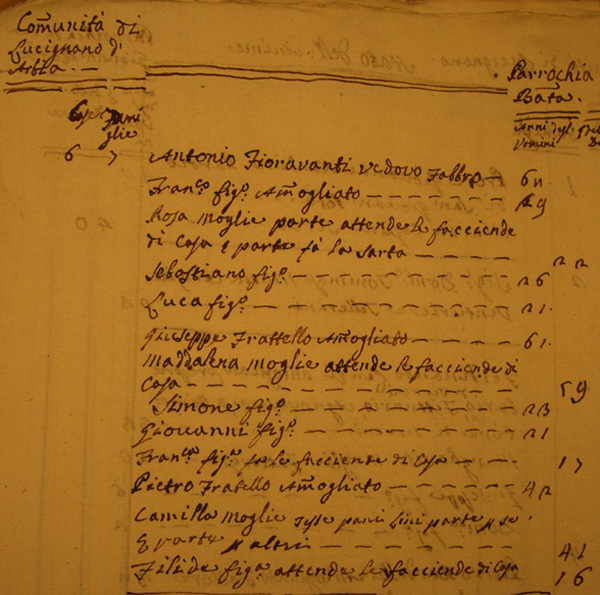 Com̃unità di
Lucignano d'
Arbia.
Parrochia
Bata.
Anni degl'
Uomini
Case
Fami
glie
6 7 Antonio Fioravanti vedovo Fabbro
Franco. figo. Am̃ogliato 29
Rosa moglie parte attende le facciende
di Casa e parte fà la sarta 22
Sebastiano figo. 26
Luca figo. 21.
Giuseppe Frattello Am̃ogliato 61.
Maddalena moglie attende le facciende di
Casa 59
Simone figo. 23
Giovanni figo. 21
Franca. figa. fa le facciende di Casa 17
Pietro Fratello Am̃ogliato 42
Camilla moglie Tesse panni lini parte p se
e parte p altri 41
Filide figa. attende le facciende di Casa 16